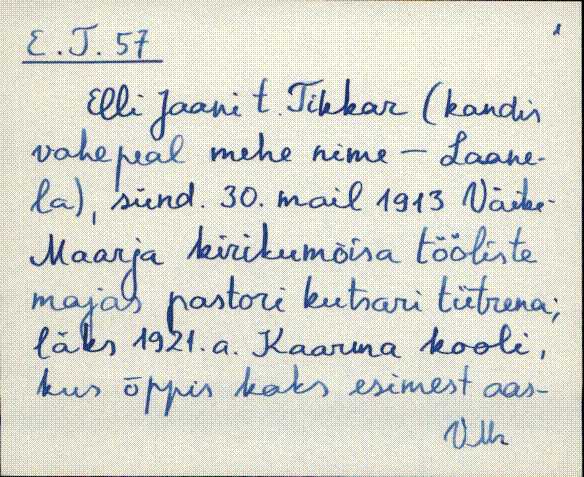 E.T. 57
1
Elli Jaani t. Tikkar (kandis
vahepeal mehe nime – Laane-
la), sünd. 30. mail 1913 Väike-
Maarja kirikumõisa tööliste
majas pastori kutsari tütrena;
läks 1921. a. Kaarma kooli,
kus õppis kaks esimest aas-